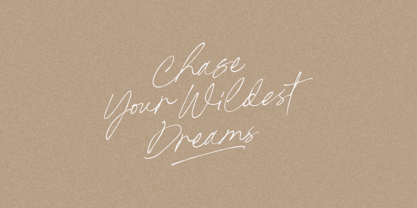 Chase
Your Wildest
Dreams